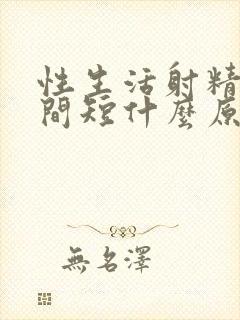 性生活射精
間短什麼原
無名澤